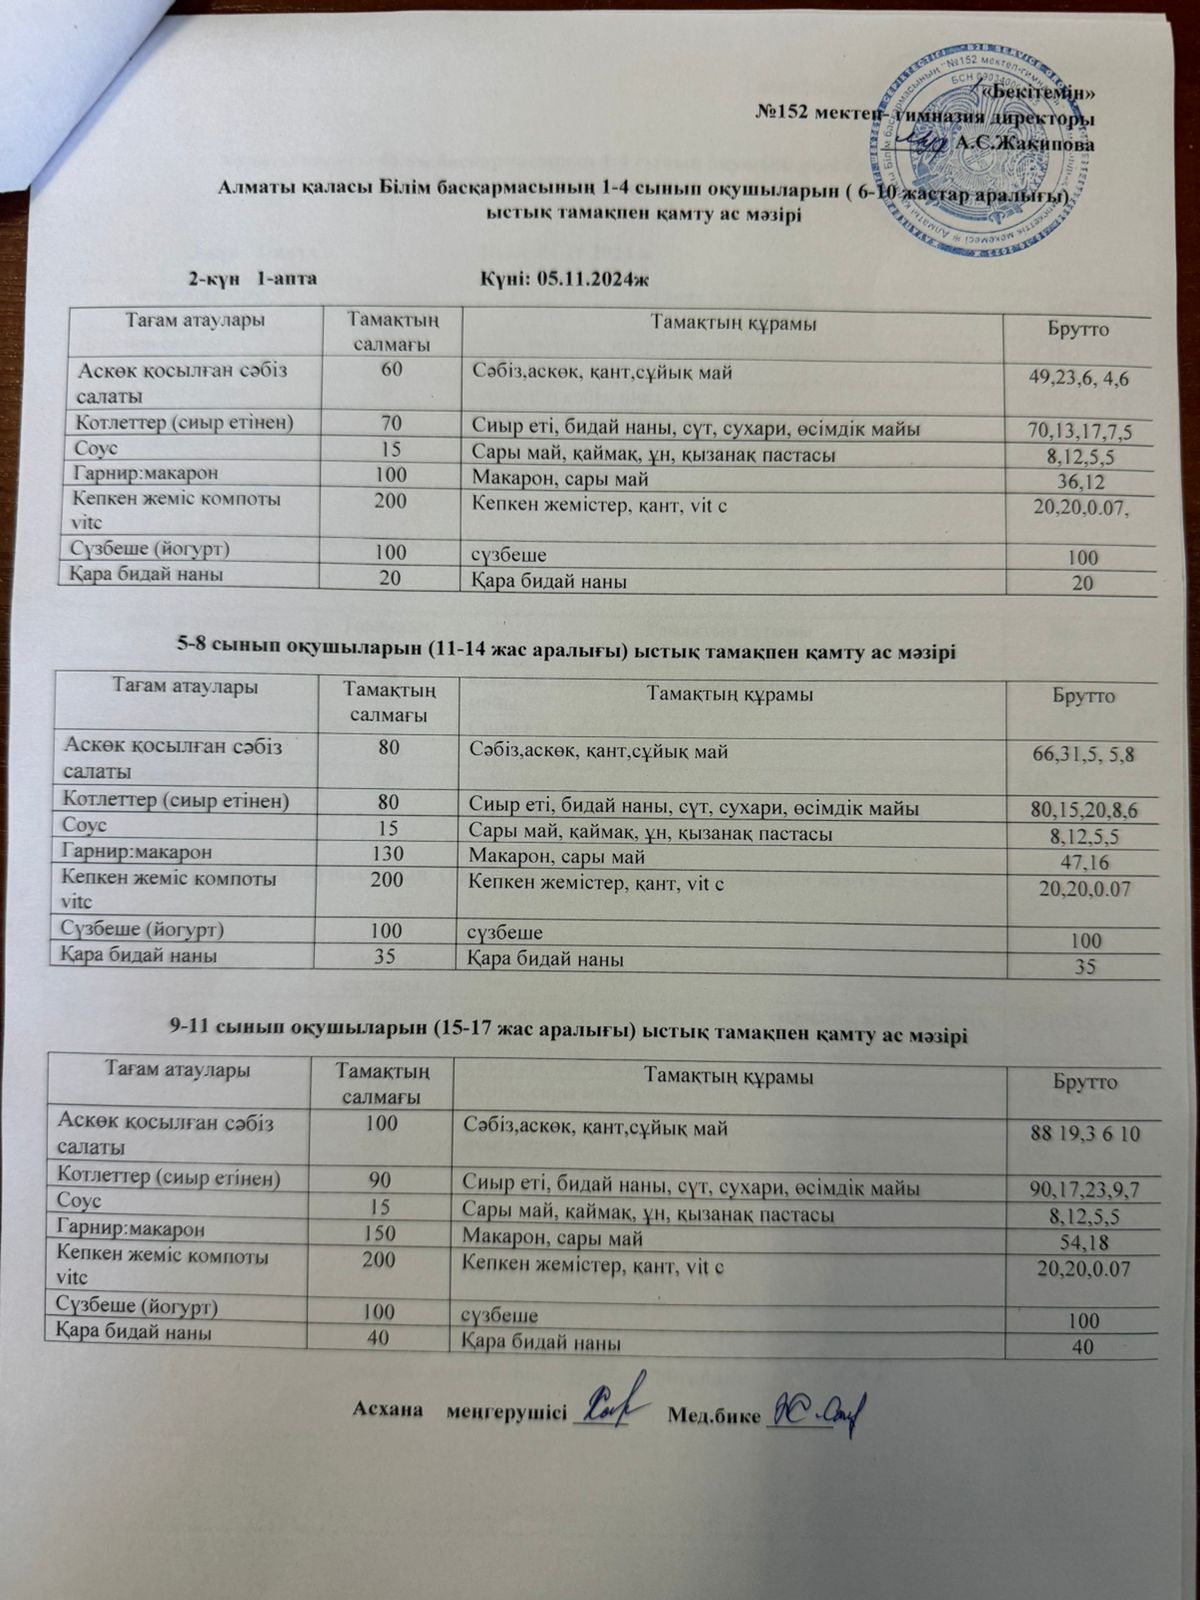 «Бекітемін»
№152 мектеп- гимназия директоры
А.С.Жақипова
Алматы қаласы Білім басқармасының 1-4 сынып оқушыларын ( 6-10 жастар аралығы)
ыстық тамақпен қамту ас мәзірі
2-күн 1-апта Күні: 05.11.2024ж
Тағам атаулары Тамақтың салмағы Тамақтың құрамы Брутто
Аскөк қосылған сәбіз салаты 60 Сәбіз,аскөк, қант,сұйық май 49,23,6, 4,6
Котлеттер (сиыр етінен) 70 Сиыр еті, бидай наны, сүт, сухари, өсімдік майы 70,13,17,7,5
Соус 15 Сары май, қаймақ, ұн, қызанақ пастасы 8,12,5,5
Гарнир:макарон 100 Макарон, сары май 36,12
Кепкен жеміс компоты vitc 200 Кепкен жемістер, қант, vit c 20,20,0.07,
Сүзбеше (йогурт) 100 сүзбеше 100
Қара бидай наны 20 Қара бидай наны 20
5-8 сынып оқушыларын (11-14 жас аралығы) ыстық тамақпен қамту ас мәзірі
Тағам атаулары Тамақтың салмағы Тамақтың құрамы Брутто
Аскөк қосылған сәбіз салаты 80 Сәбіз,аскөк, қант,сұйық май 66,31,5, 5,8
Котлеттер (сиыр етінен) 80 Сиыр еті, бидай наны, сүт, сухари, өсімдік майы 80,15,20,8,6
Соус 15 Сары май, қаймақ, ұн, қызанақ пастасы 8,12,5,5
Гарнир:макарон 130 Макарон, сары май 47,16
Кепкен жеміс компоты vitc 200 Кепкен жемістер, қант, vit c 20,20,0.07
Сүзбеше (йогурт) 100 сүзбеше 100
Қара бидай наны 35 Қара бидай наны 35
9-11 сынып оқушыларын (15-17 жас аралығы) ыстық тамақпен қамту ас мәзірі
Тағам атаулары Тамақтың салмағы Тамақтың құрамы Брутто
Аскөк қосылған сәбіз салаты 100 Сәбіз,аскөк, қант,сұйық май 88 19,3 6 10
Котлеттер (сиыр етінен) 90 Сиыр еті, бидай наны, сүт, сухари, өсімдік майы 90,17,23,9,7
Соус 15 Сары май, қаймақ, ұн, қызанақ пастасы 8,12,5,5
Гарнир:макарон 150 Макарон, сары май 54,18
Кепкен жеміс компоты vitc 200 Кепкен жемістер, қант, vit c 20,20,0.07
Сүзбеше (йогурт) 100 сүзбеше 100
Қара бидай наны 40 Қара бидай наны 40
Асхана меңгерушісі Мед.бике